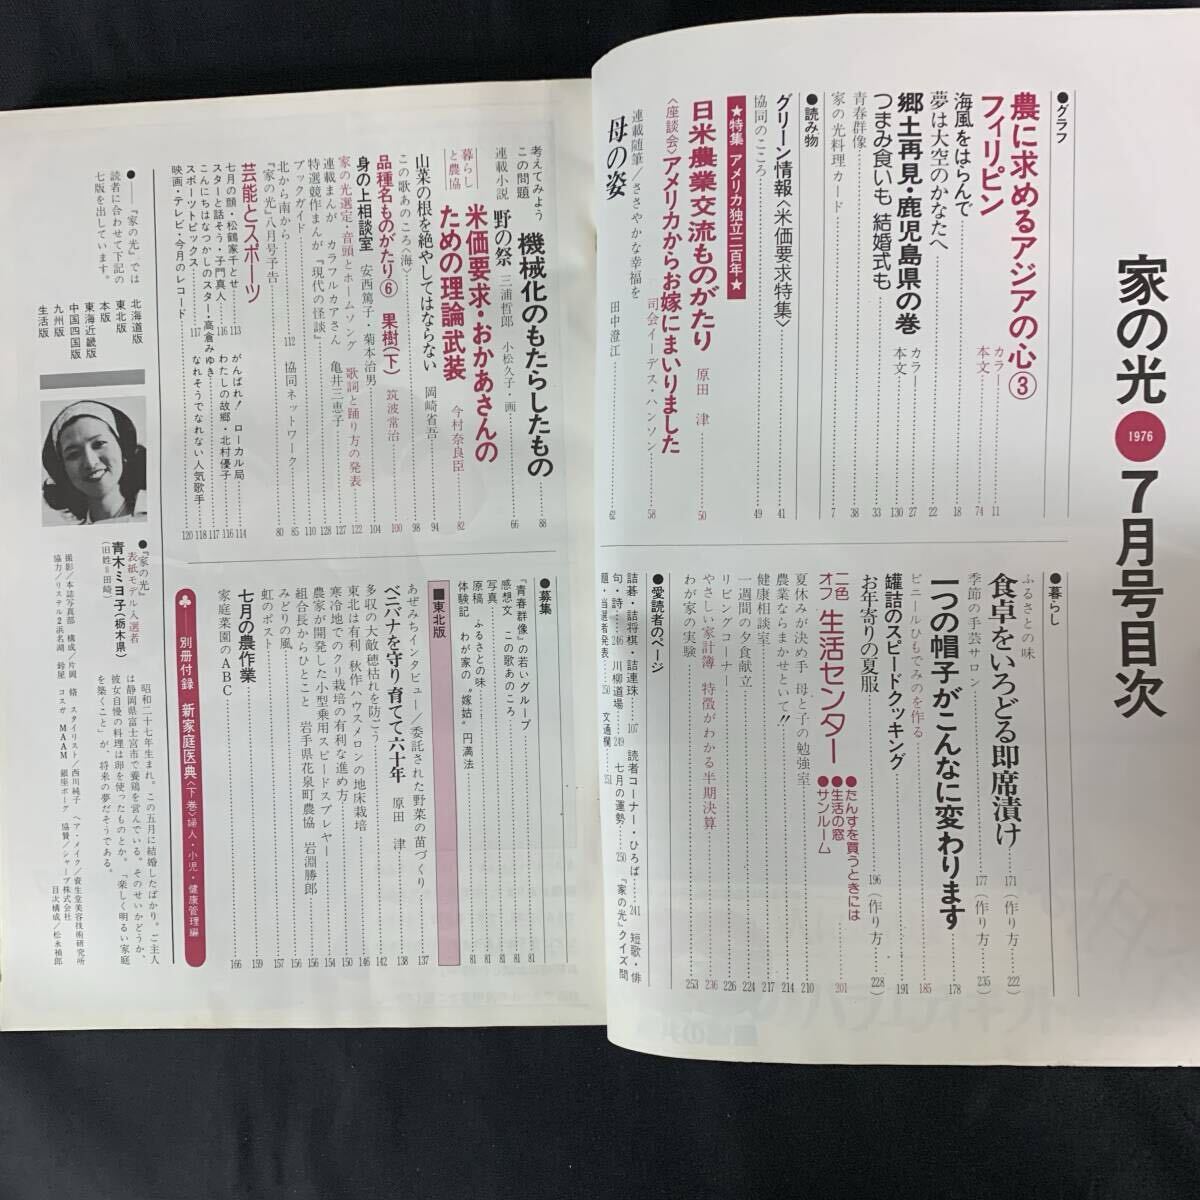 家の光 1976 7月号目次
●グラフ
農に求めるアジアの心③
フィリピン
カラー……11
本文……74
海風をはらんで……18
夢は大空のかなたへ……22
郷土再見・鹿児島県の巻
つまみ食いも 結婚式も
カラー……27
本文……130
青春群像……33
家の光料理カード……38
●読み物
グリーン情報〈米価要求特集〉……41
協同のこころ……49
★特集 アメリカ独立二百年★
日米農業交流ものがたり 原田 津……50
〈座談会〉アメリカからお嫁にまいりました
司会イーデス・ハンソン……58
連載随筆/ささやかな幸福を
母の姿 田中澄江……62
●暮らし
ふるさとの味
食卓をいろどる即席漬け……171(作り方……222)
季節の手芸サロン……177(作り方……235)
一つの帽子がこんなに変わります……178
ビニールひもでみのを作る……185
罐詰のスピードクッキング……191
お年寄りの夏服……196(作り方……228)
二色オフ 生活センター
●たんすを買うときには
●生活の窓
●サンルーム
……201
夏休みが決め手 母と子の勉強室……210
農業ならまかせといて!!……214
健康相談室……217
一週間の夕食献立……224
リビングコーナー……226
やさしい家計簿 特徴がわかる半期決算……236
わが家の実験……253
●愛読者のページ
詰碁・詰将棋・詰連珠……107 読者コーナー・ひろば……241 短歌・俳
句・詩……246 川柳道場……249 七月の運勢……250 「家の光」クイズ問
題・当選者発表……250 文通欄……251
考えてみよう
この問題 機械化のもたらしたもの……88
連載小説 野の祭 三浦哲郎 小松久子・画……66
暮らしと農協
米価要求・おかあさんの
ための理論武装 今村奈良臣……82
山菜の根を絶やしてはならない 岡崎省吾……94
この歌あのころ〈海〉……98
品種名ものがたり⑥ 果樹(下) 筑波常治……100
身の上相談室 安西篤子・菊本治男……104
家の光選定・音頭とホームソング 歌詞と踊り方の発表……122
連載まんが カラフルカアさん 亀井三恵子……127
特選競作まんが『現代の怪談』……128
ブックガイド……110
北から南から……112 協同ネットワーク……85
『家の光』八月号予告……80
芸能とスポーツ
七月の顔・松鶴家千とせ……113 がんばれ! ローカル局……114
スターと話そう・子門真人……116 わたしの故郷・北村優子……116
こんにちはなつかしのスター・高倉みゆき……117
スポーツトピックス……117 なれそうでなれない人気歌手……118
映画・テレビ・今月のレコード……120
●募集
『青春群像』の若いグループ……81
感想文 この歌あのころ……81
写真……81
原稿 ふるさとの味……81
体験記 わが家の〝嫁姑〟円満法……81
■東北版
あぜみちインタビュー/委託された野菜の苗づくり……137
ベニバナを守り育てて六十年 原田 津……138
多収の大敵穂枯れを防ごう……142
東北は有利 秋作ハウスメロンの地床栽培……146
寒冷地でのクリ栽培の有利な進め方……150
農家が開発した小型乗用スピードスプレヤー……154
組合長からひとこと 岩手県花泉町農協 岩淵勝郎……156
みどりの風……156
虹のポスト……157
七月の農作業……159
家庭菜園のABC……166
♣別冊付録 新家庭医典〈下巻〉婦人・小児・健康管理編
●――『家の光』では
読者に合わせて下記の
七版を出しています。
北海道版
東北版
本版
東海近畿版
中国四国版
九州版
生活版
●『家の光』
表紙モデル入選者
青木ミヨ子(栃木県)
(旧姓=田崎)
昭和二十七年生まれ。この五月に結婚したばかり。ご主人
は静岡県富士宮市で養鶏を営んでいる。そのせいかどうか、
彼女自慢の料理は卵を使ったものとか。「楽しく明るい家庭
を築くこと」が、将来の夢だそうである。
撮影/本誌写真部 構成/片岡 脩 スタイリスト/西川純子 ヘア・メイク/資生堂美容技術研究所
協力/リステル2浜名湖 鈴屋 コスガ MAAM 銀座ボーグ 協賛/シャープ株式会社
目次構成/松永禎郎